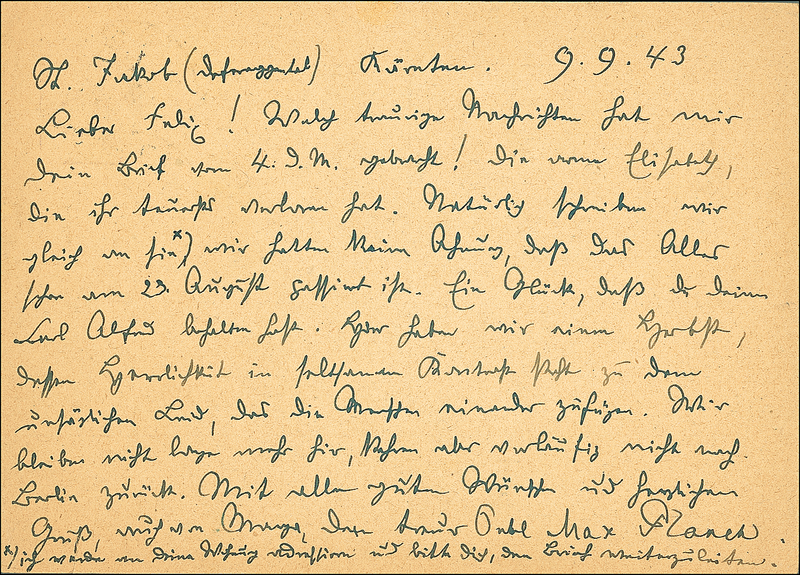 St. Jakob (Defereggental) Kärnten. 9.9.43
Lieber Felix! Welch traurige Nachrichten hat mir
Dein Brief vom 4. d. M. gebracht! Die arme Elisabeth,
die ihr teuerstes verloren hat. Natürlich schreiben wir
gleich an sie*) wir hatten keine Ahnung, daß das Alles
schon am 23. August passiert ist. Ein Glück, daß du deinen
Carl Alfred behalten hast. Hier haben wir einen Herbst,
dessen Herrlichkeit in seltsamem Kontrast steht zu dem
unsäglichen Leid, das die Menschen einander zufügen. Wir
bleiben nicht lange mehr hier, kehren aber vorläufig nicht nach
Berlin zurück. Mit allen guten Wünschen und herzlichem
Gruß, auch von Marga, Dein treuer Max Planck.
*) ich werde an Deine Wohnung adressieren und bitte dich, den Brief weiterzuleiten.